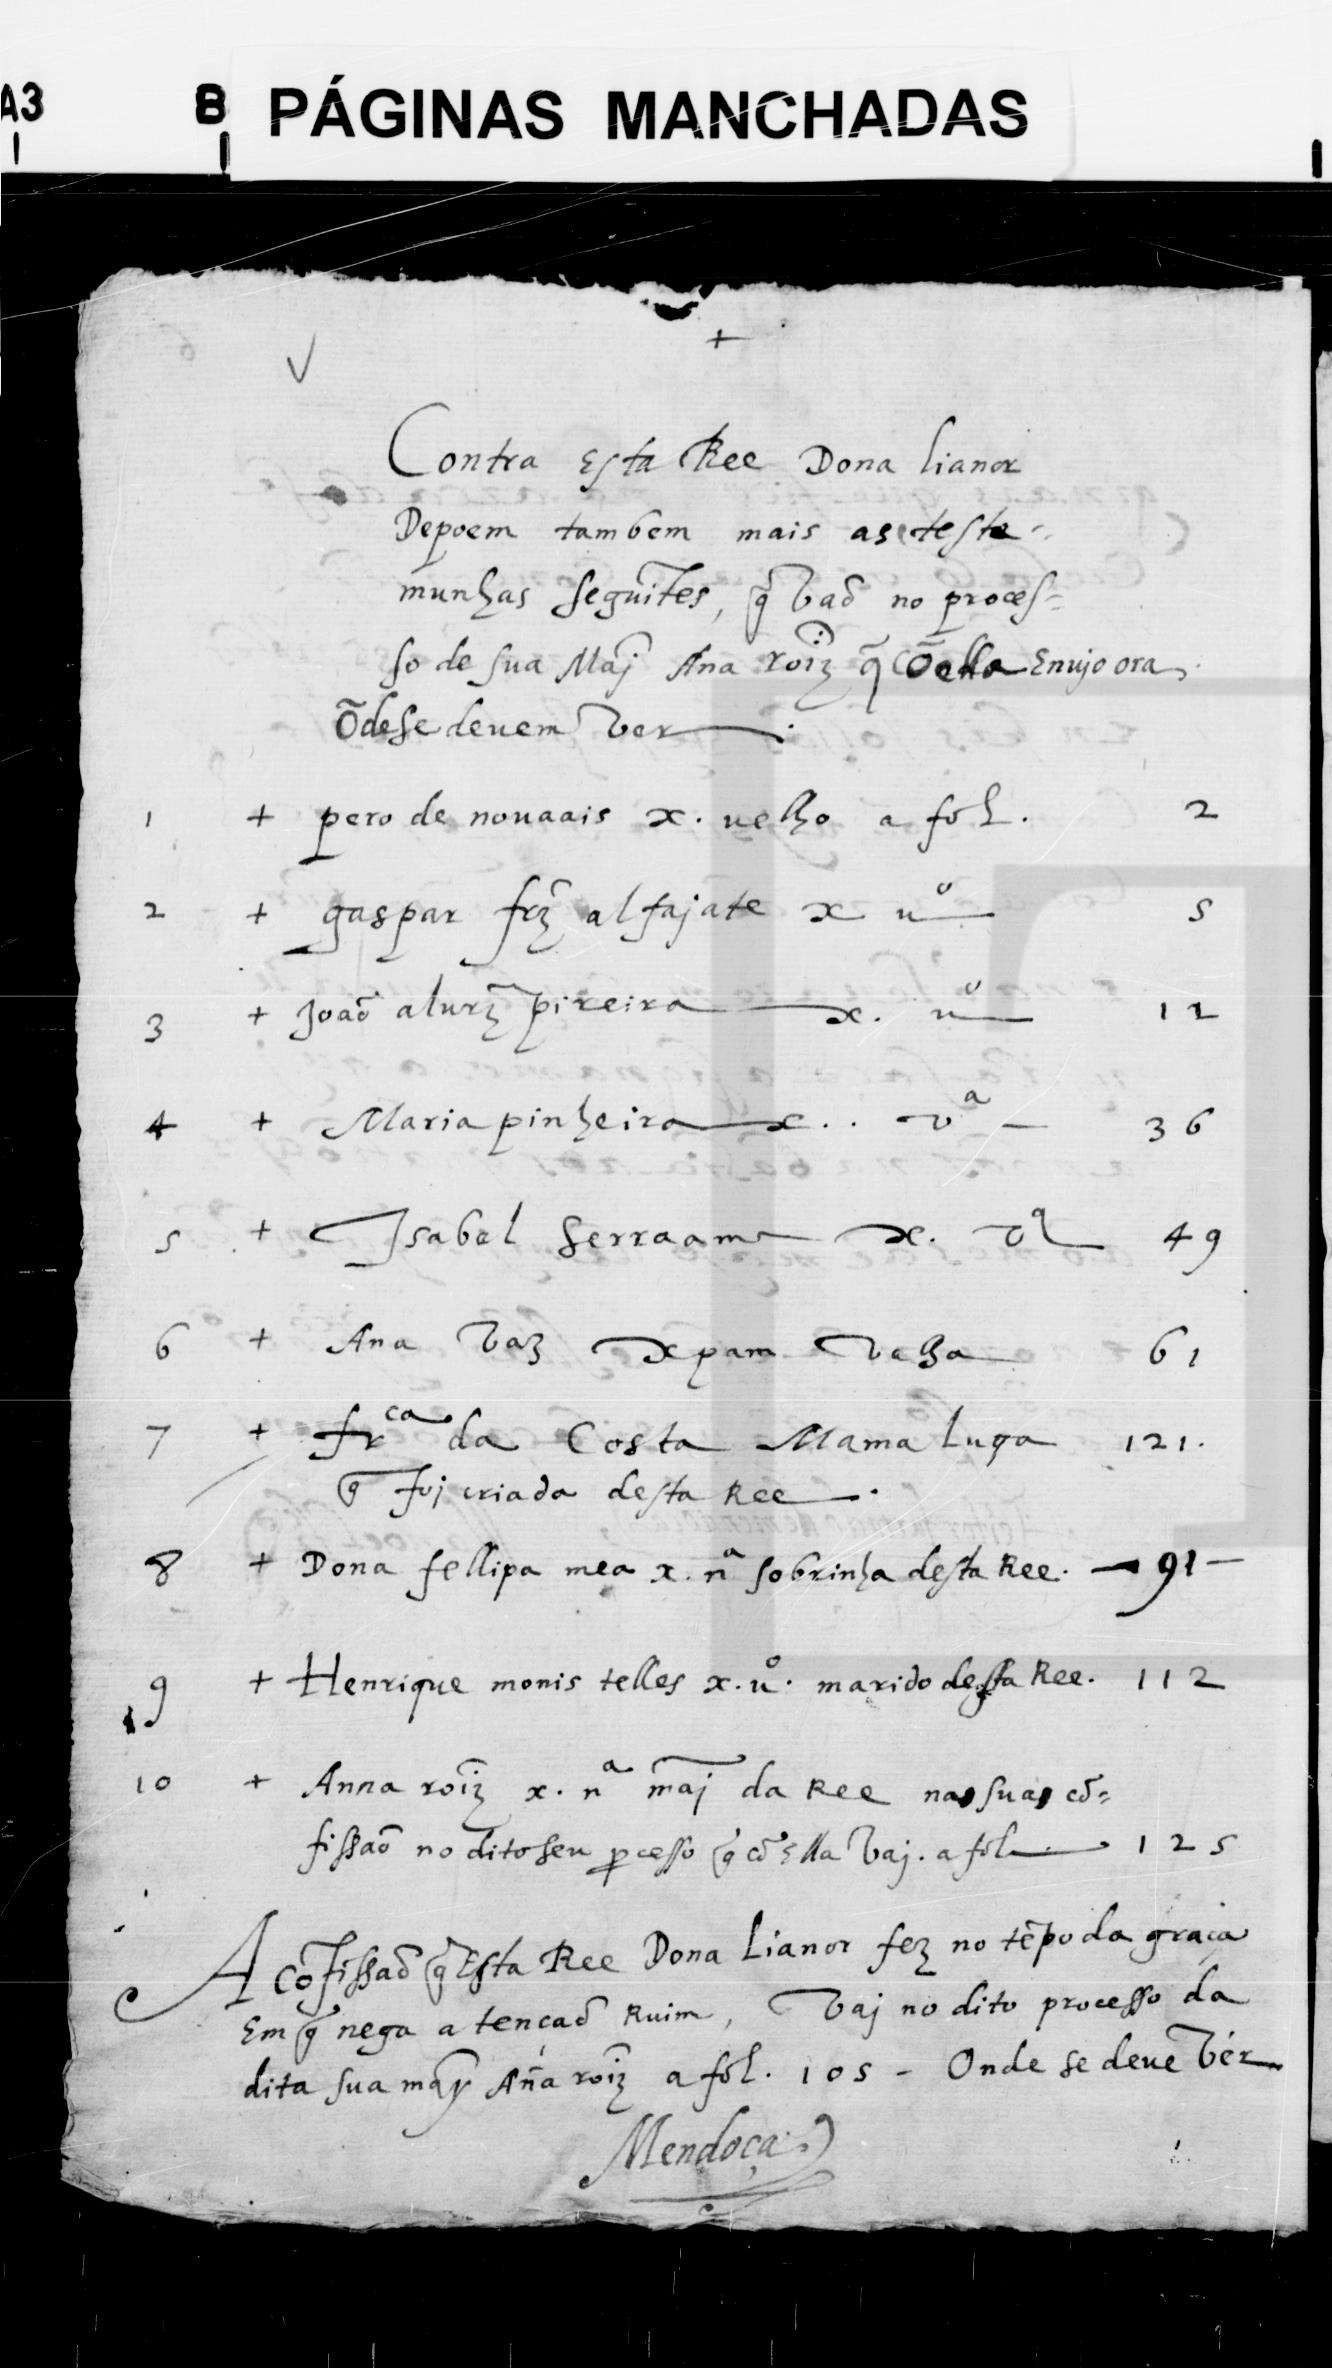 A3 8 PÁGINAS MANCHADAS
+
Contra Esta Ree Dona lianor
Depoem tambem mais as teste=
munhas seguĩtes, q̃ vaõ no proces=
so de sua Maj Ana roiz q̃ cõ ella Envjo ora,
õde se devem ver
1 + pero de nouaais x. uelho a fol. 2
2 + gaspar frz̃ alfajate x uº 5
3 + Joaõ alurz̃ pireira x. uº 12
4 + Maria pinheira x. . vª 36
5 + Isabel serraam x. vª 49
6 + Ana vaz xpam velha 61
7 + frca da Costa Mamaluqa 121.
q̃ foj criada desta Ree.
8 + Dona fellipa mea x. nª sobrinha desta Ree. 91
9 + Henrique monis telles x. uº. marido desta Ree. 112
10 + Anna roiz x. nª maj da Ree na sua cõ=
fissaõ no dito seu pcesso q̃ cõ Ella vaj. a fol 125
A Cõfissaõ q̃ Esta Ree Dona Lianor fez no tẽpo da graça
Em q̃ nega a tençaõ Ruim, vaj no dito processo da
dita sua maỹ Añа roiz a fol. 105 - Onde se deue vér
Mendoça